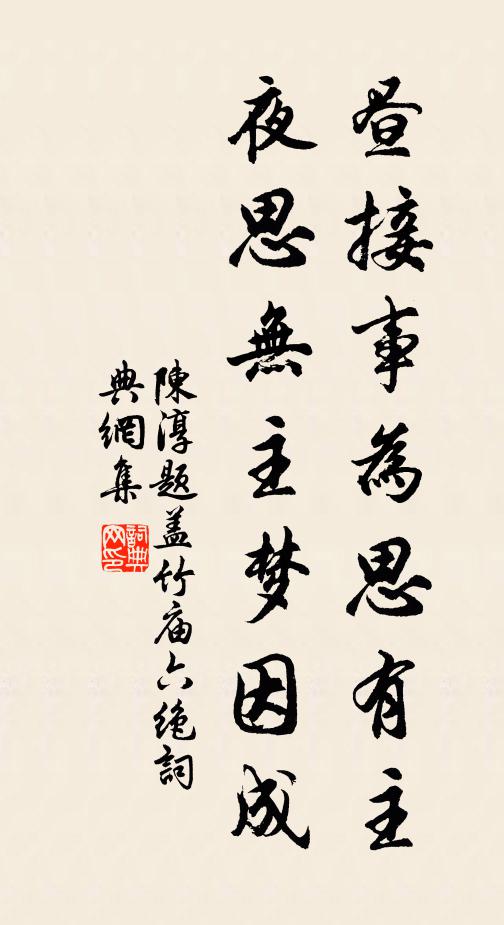 昼接事為思有主
夜思無主梦因成
陳淳题盖竹庙六绝詞
典網集
詞典网印